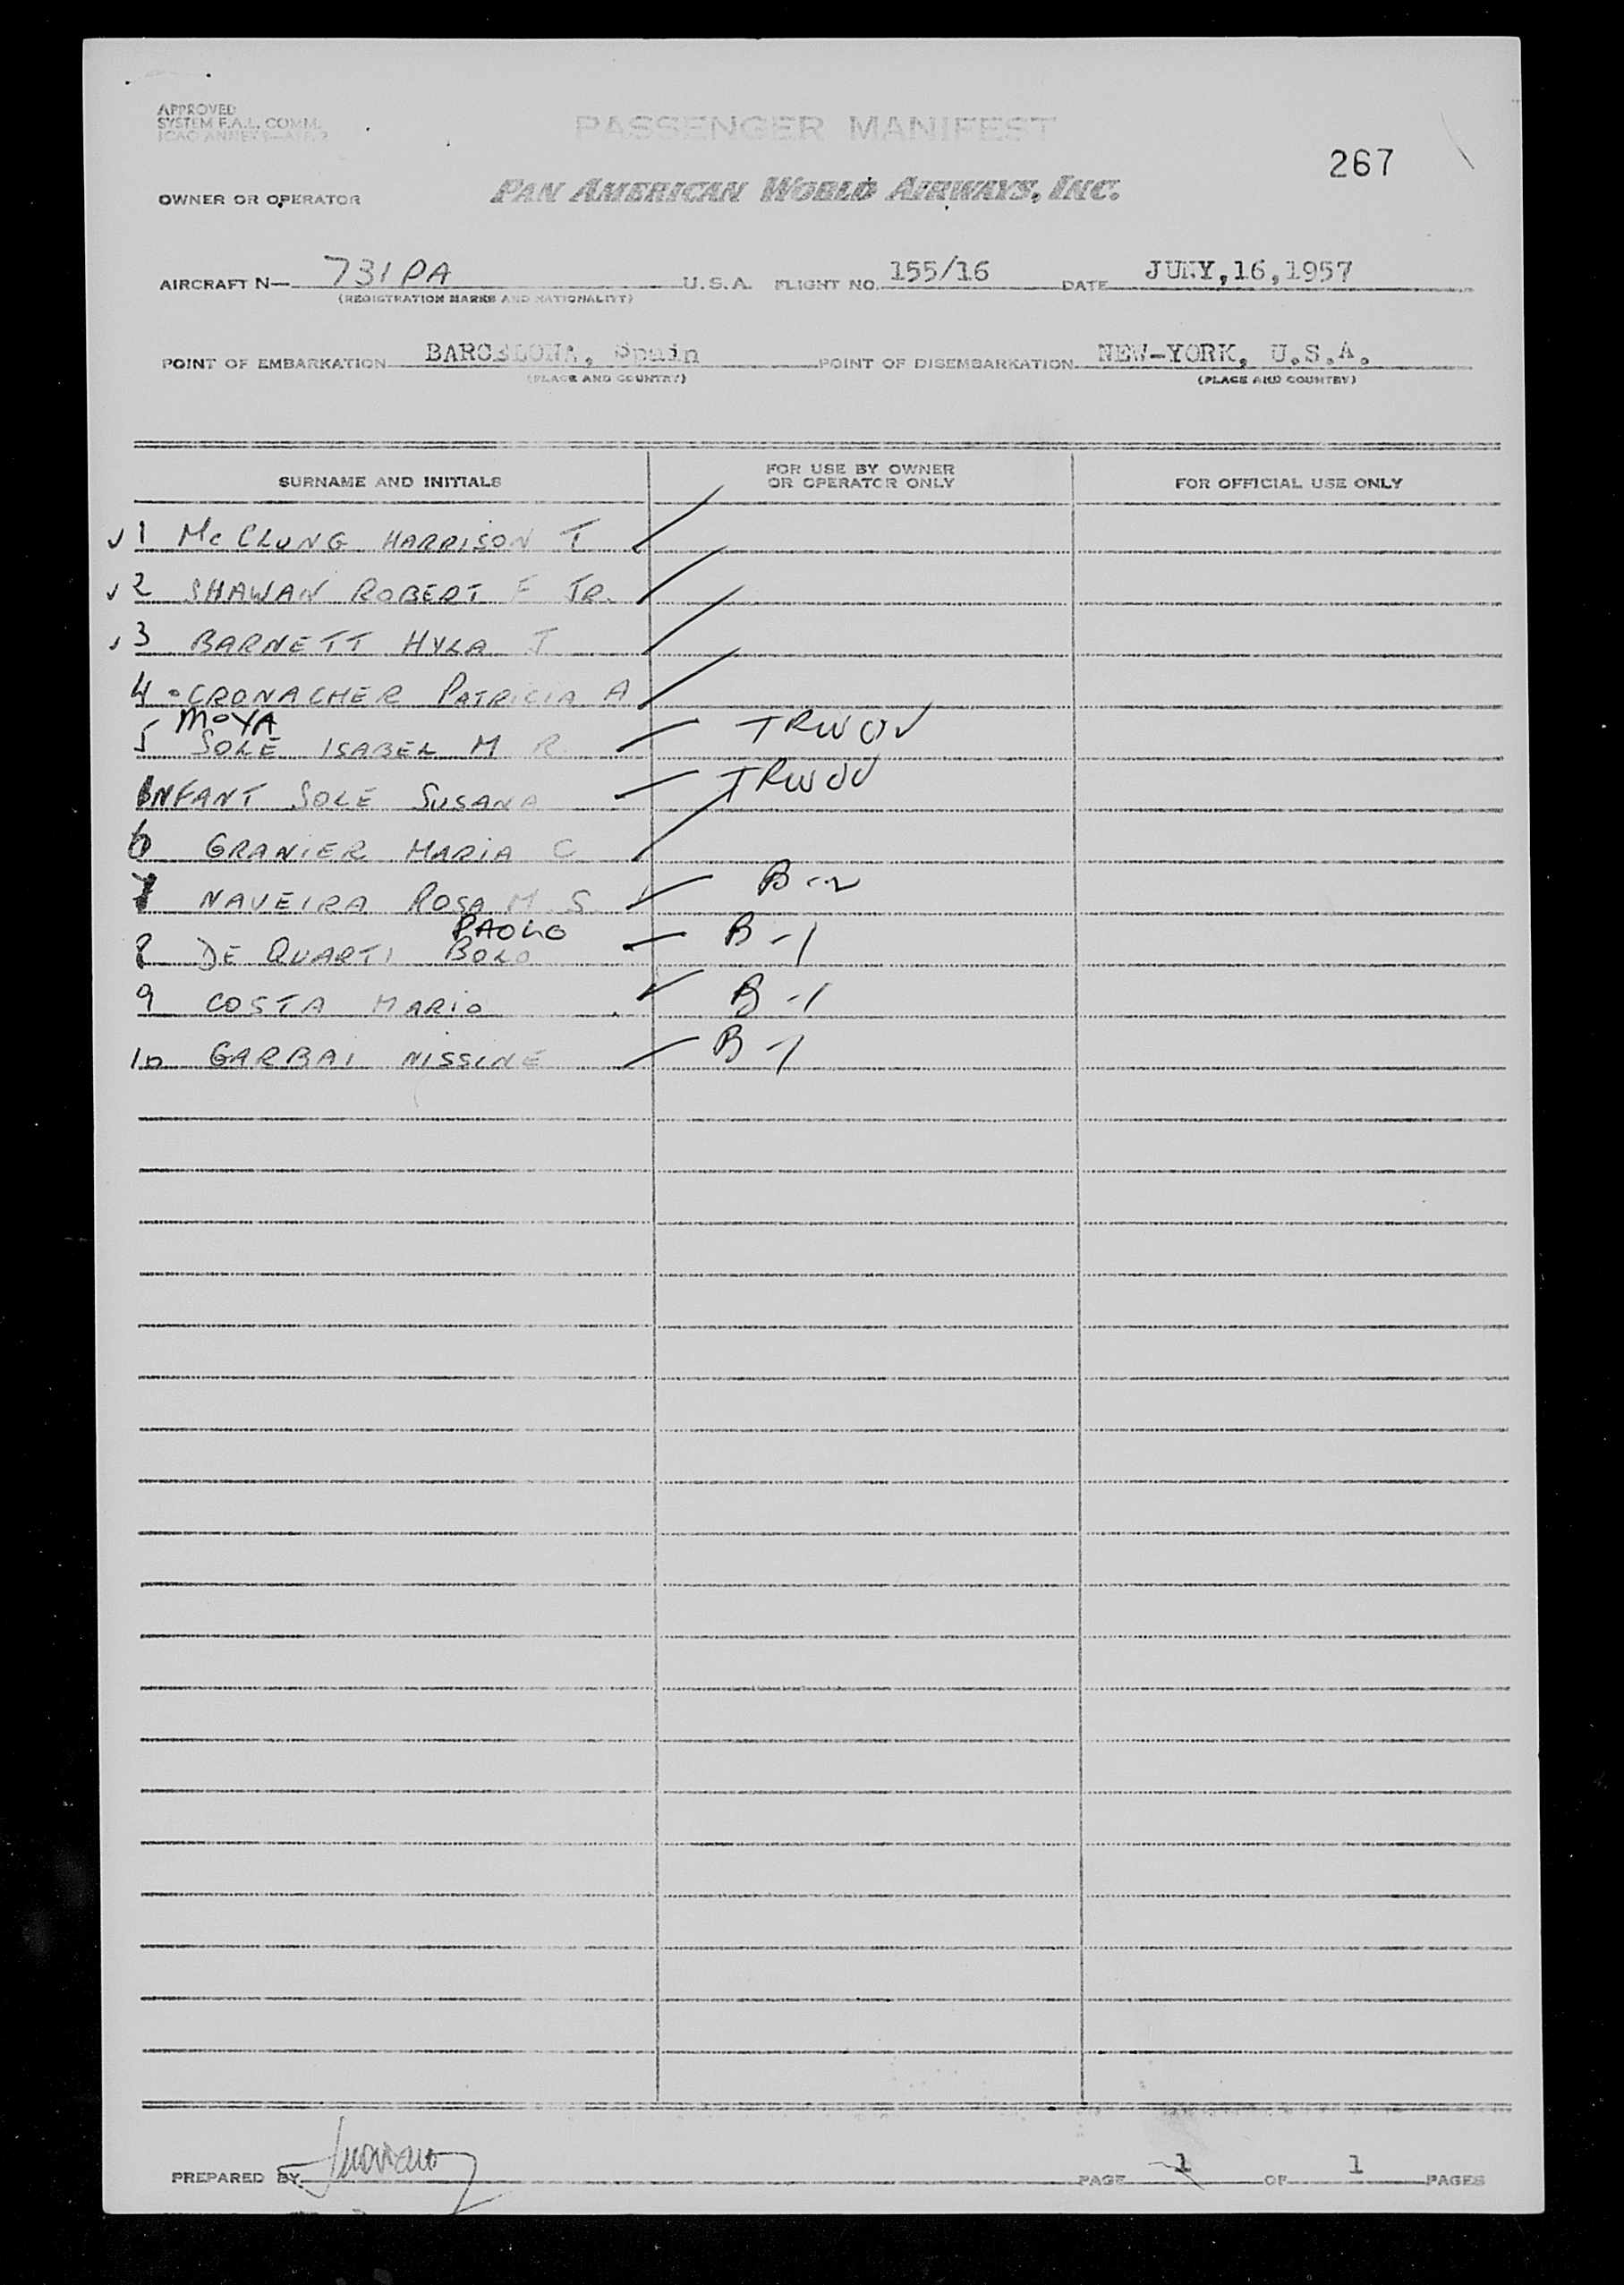 APPROVED
SYSTEM F.A.L. COMM.
PASSENGER MANIFEST
267
OWNER OR OPERATOR PAN AMERICAN WORLD AIRWAYS, INC.
AIRCRAFT N— 731PA U.S.A. FLIGHT NO. 155/16 DATE 16,1957
(REGISTRATION MARKS AND NATIONALITY)
POINT OF EMBARKATION BARCELONA, Spain POINT OF DISEMBARKATION NEW-YORK, U.S.A.
(PLACE AND COUNTRY) (PLACE AND COUNTRY)
SURNAME AND INITIALS FOR USE BY OWNER OR OPERATOR ONLY FOR OFFICIAL USE ONLY
1 Mc CLUNG HARRISON T
2 SHAWAN ROBERT F JR.
3 BARNETT HYLA J
4 CRONACHER PATRICIA A
MOYA
5 SOLE ISABEL M R TRWOV
INFANT SOLE SUSANA TRWOV
6 GRANIER MARIA C
7 NAVEIRA ROSA M S B-2
PAOLO
8 DE QUARTI BOLO B-1
9 COSTA MARIO B-1
10 GARBAI NISSINE B-1
PREPARED BY PAGE 1 OF 1 PAGES